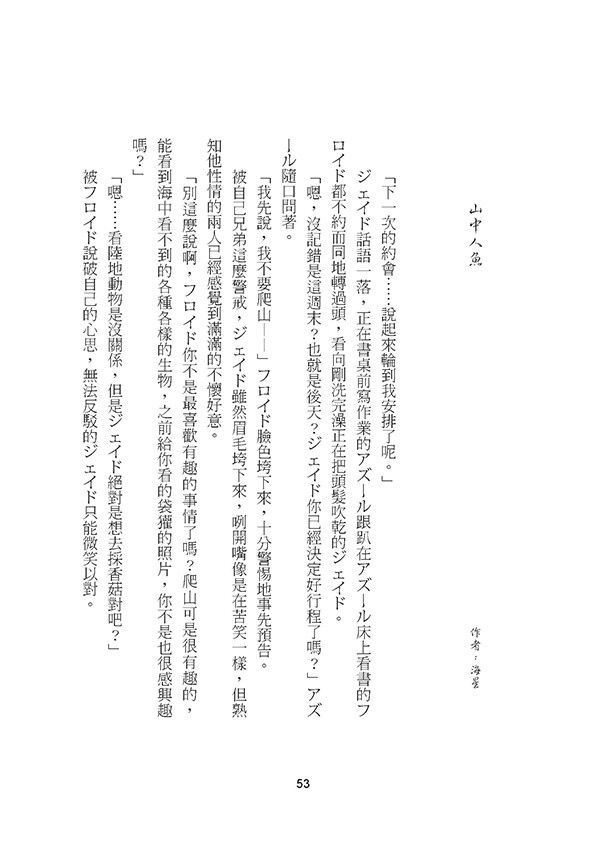 山中人魚
作者：海星
「下一次的約會……說起來輪到我安排了呢。」
ジェイド話語一落，正在書桌前寫作業的アズール跟趴在アズール床上看書的フ
ロイド都不約而同地轉過頭，看向剛洗完澡正在把頭髮吹乾的ジェイド。
「嗯，沒記錯是這週末？也就是後天？ジェイド你已經決定好行程了嗎？」アズ
ール隨口問著。
「我先說，我不要爬山——」フロイド臉色垮下來，十分警惕地事先預告。
被自己兄弟這麼警戒，ジェイド雖然眉毛垮下來，咧開嘴像是在苦笑一樣，但熟
知他性情的兩人已經感覺到滿滿的不懷好意。
「別這麼說啊，フロイド你不是最喜歡有趣的事情了嗎？爬山可是很有趣的，
能看到海中看不到的各種各樣的生物，之前給你看的袋獾的照片，你不是也很感興趣
嗎？」
「嗯……看陸地動物是沒關係，但是ジェイド絕對是想去採香菇對吧？」
被フロイド說破自己的心思，無法反駁的ジェイド只能微笑以對。
53